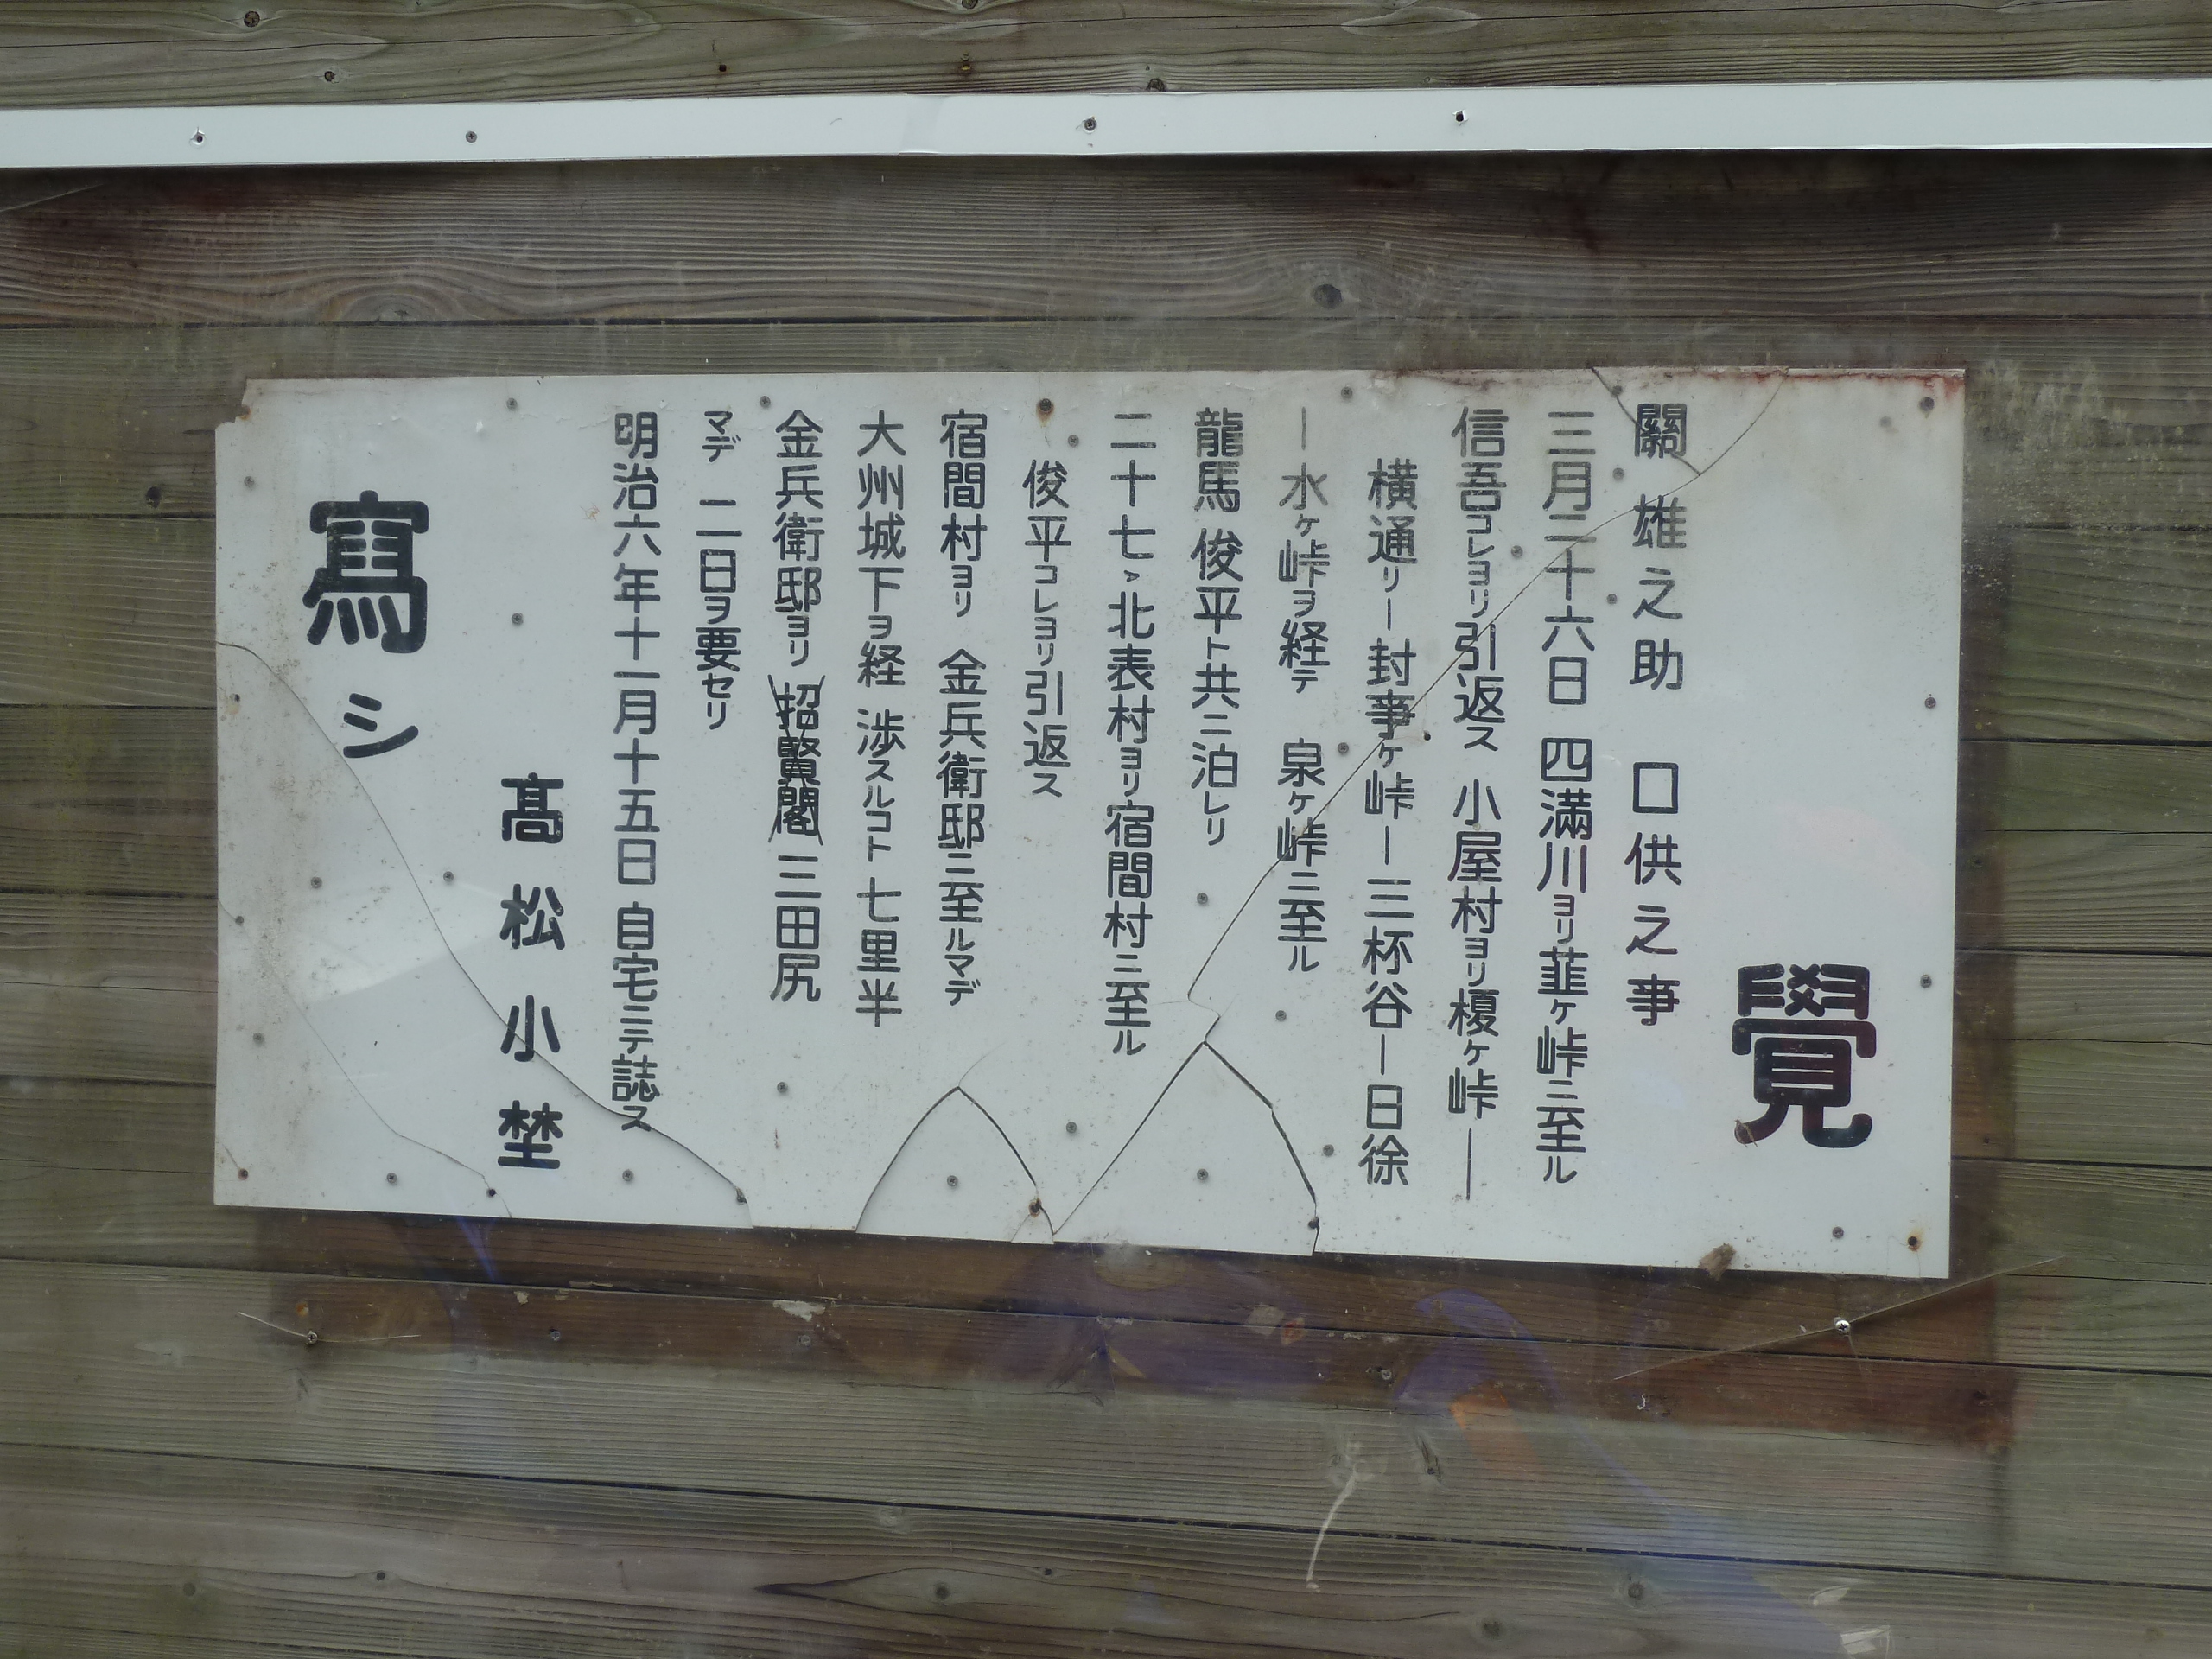 覺
關雄之助 口供之事
三月二十六日 四満川ヨリ韮ヶ峠ニ至ル
信吾コレヨリ引返ス 小屋村ヨリ榎ヶ峠―
横通リ―封事ヶ峠―三杯谷―日徐
―水ヶ峠ヲ経テ 泉ヶ峠ニ至ル
龍馬 俊平ト共ニ泊レリ
二十七、北表村ヨリ宿間村ニ至ル
俊平コレヨリ引返ス
宿間村ヨリ 金兵衛邸ニ至ルマデ
大州城下ヲ経 渉スルコト 七里半
金兵衛邸ヨリ(招賢閣)三田尻
マデ 二日ヲ要セリ
明治六年十一月十五日 自宅ニテ誌ス
髙松小埜
寫シ